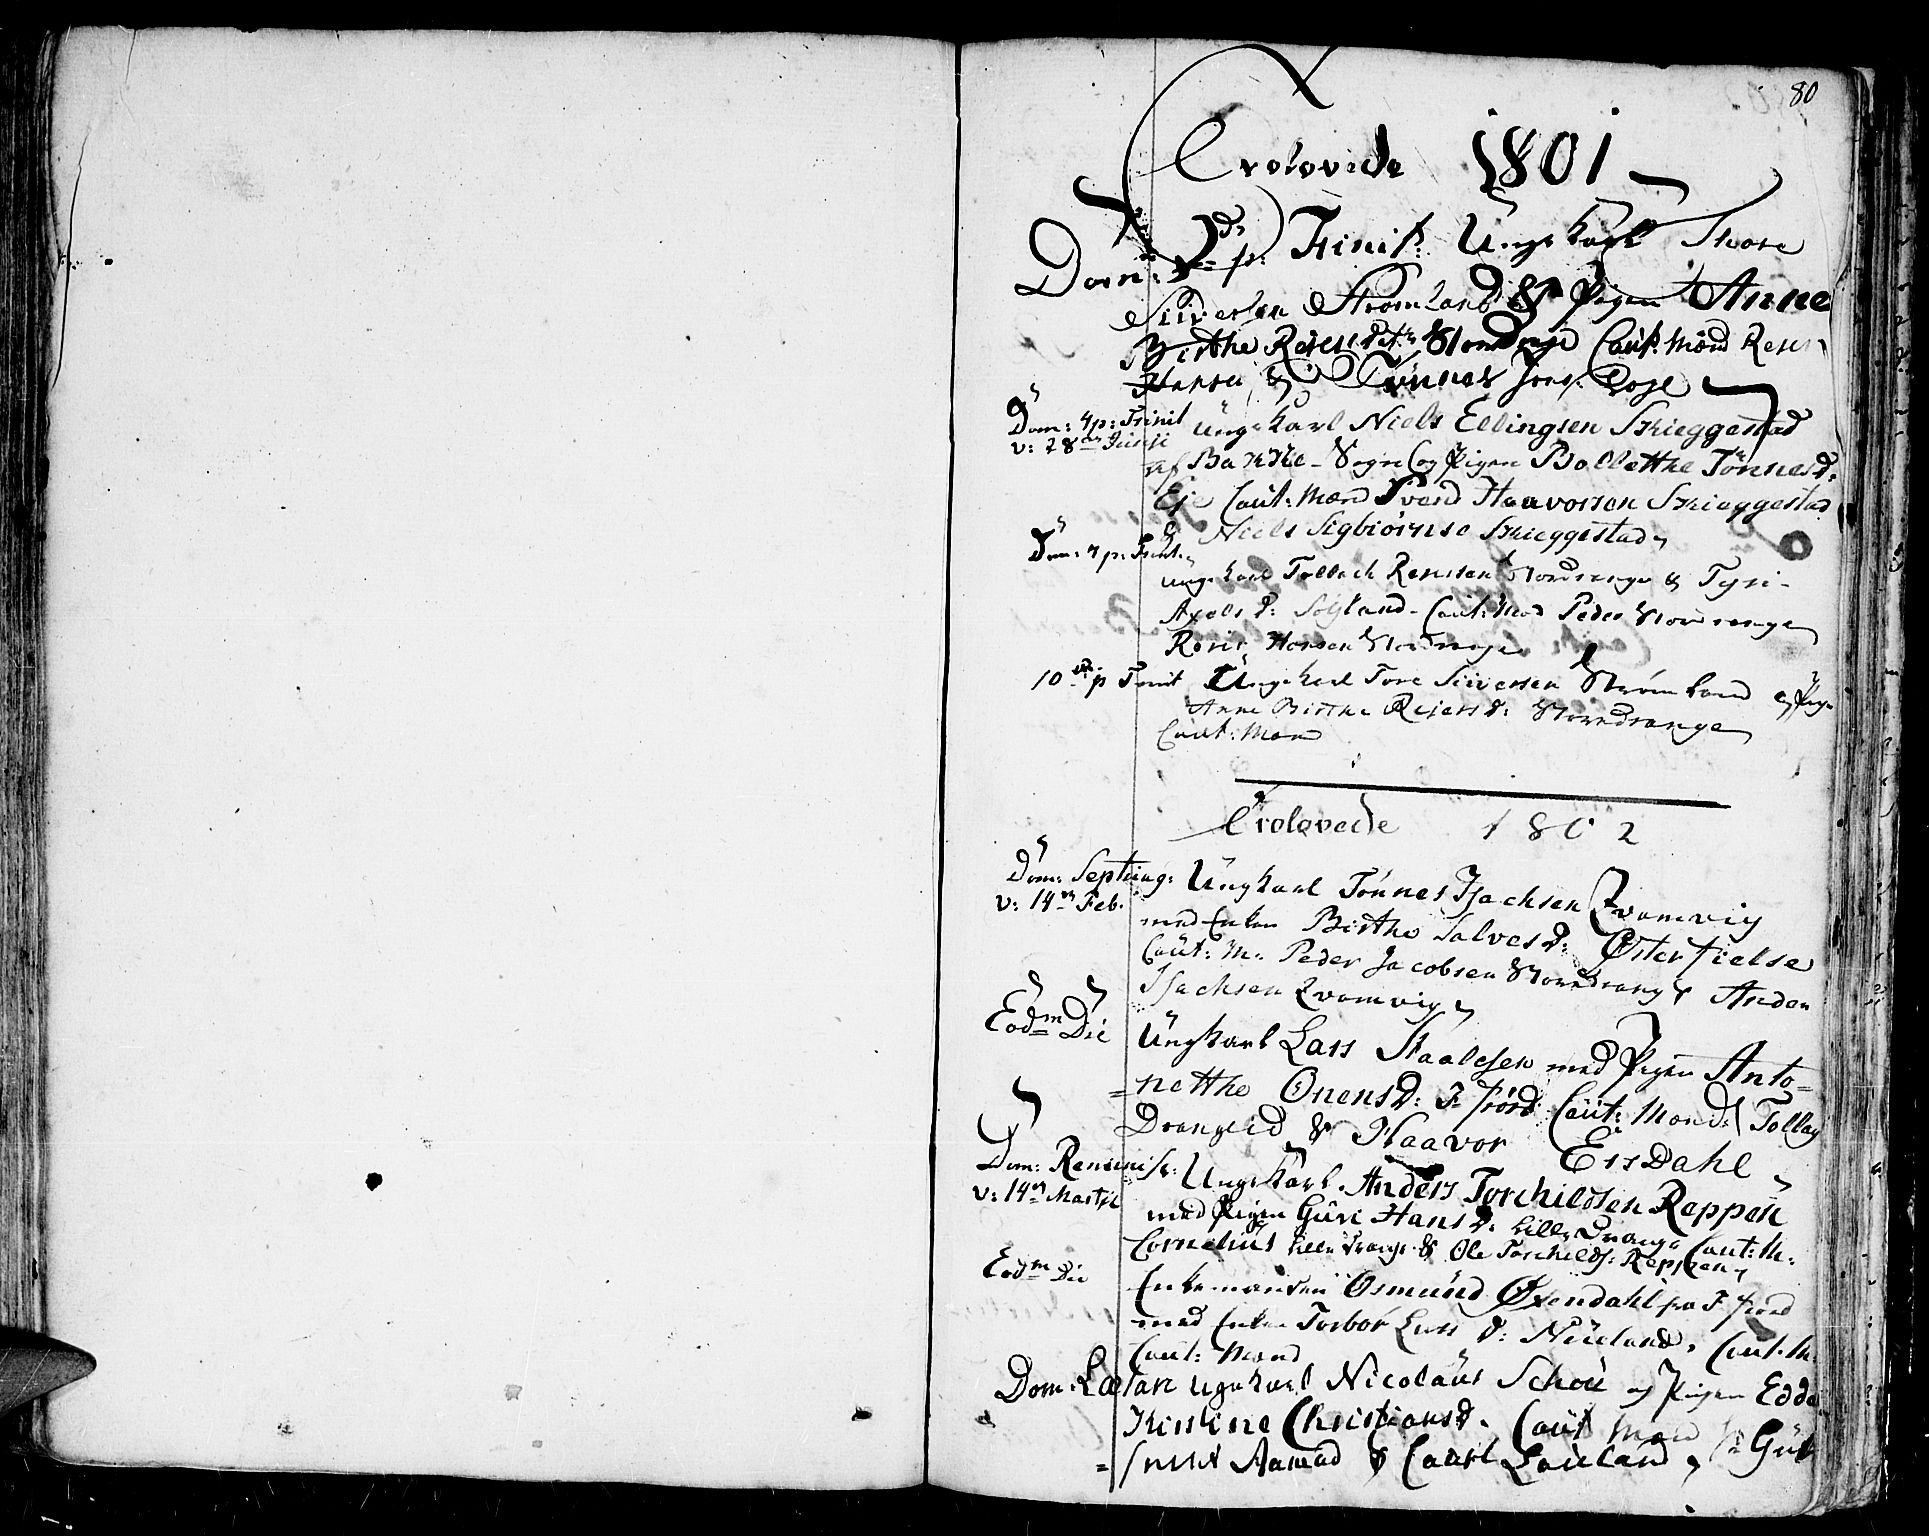 80
Trolovede 1801
Dom: 2de p: Trinit: Ungekarl Thore
Siversen Strømland & Pigen Anne
Birthe Reiersdr: Stordrange Caut: Mænd Reier
Hansen & Tønnes Jons:
Dom: 4 p: Trinit Ungekarl Niels Ellingsen Skieggestad
v: 28de Junji
af Bakke-Sogn og Pigen Bollethe Tønnesd:
Eje Caut: Mænd Svend Haavorsen Skieggestad
& Niels Sigbiørnse Skieggestad
Dom: 4 p: Trinit.
Ungekarl Tollach Reinssen Stordrange & Tyri-
Axels d: Søyland - Caut: Mæd Peder Stordrange
Reier Hansen Stordrange
10de p Trinit Ungekarl Tore Siversen Strømland og Pige
Anne Birthe Reiersd: Stordrange
Caut: Mæn
Trolovede 1802
Dom: Septuag: Ungkarl Tønnes Isachsen Qvamvig
v: 14de Feb.
med Enken Birthe Salvesd: Østerfielse
Caut: M. Peder Jacobsen Stordrang & Anden
Isachsen Qvamvig
Eodm Die Ungkarl Lars Staalesen med Pigen Anto-
=netthe Onensd: F fiord Caut: Mænd: Tollag
Drangeid & Haavor Eisdahl
Dom: Reminisc: Ungekarl Anders Torchildsen Reppen
v: 14de Martji
med Pigen Guri Hansd: Lille Drange Caut: M.
Cornelius Lille Drange & Ole Torchilds: Reppen
Eodm Die
Enkemanden Osmund Øxendahl fra F fiord
med Enken Torbor Lars d: Nueland, Caut. M.
Caut: Mænd
Dom: Lætare Ugekarl Nicolaus Schou og Pigen Edde
Kirstine Christiansd. Caut Mænd Hr Gut
Aamod & Caurl Louland